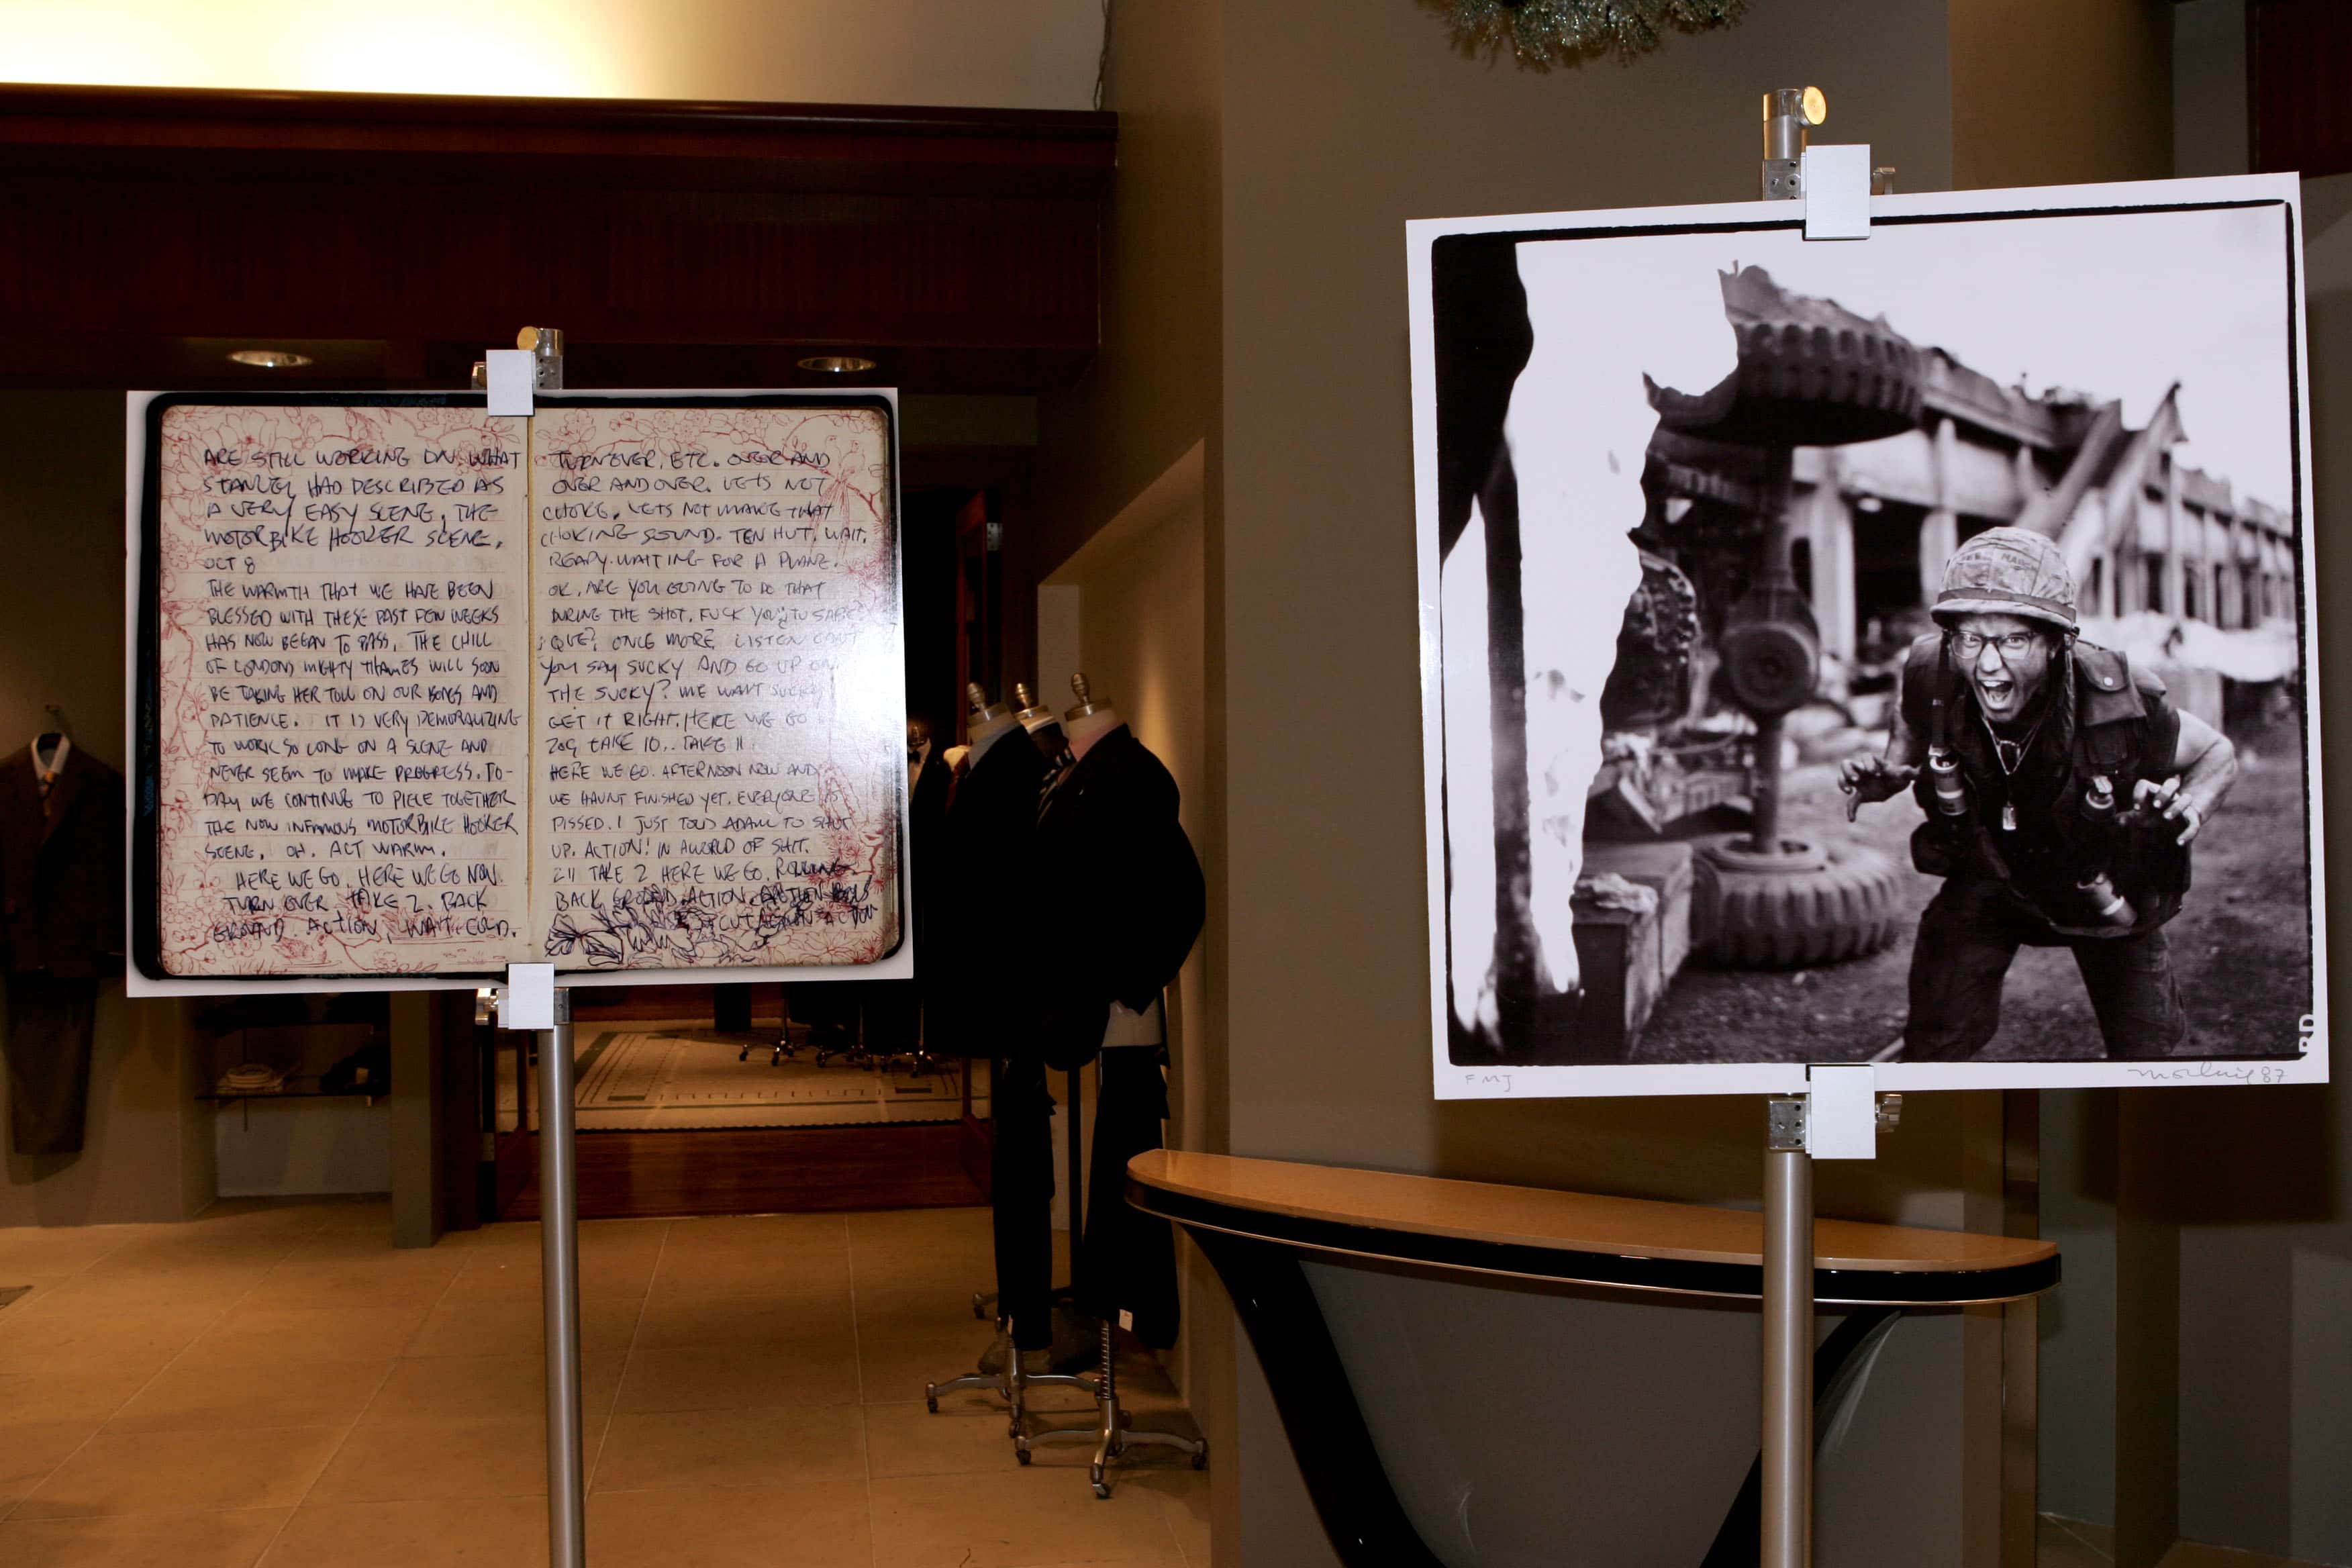 ARE STILL WORKING ON WHAT
STANLEY HAD DESCRIBED AS
A VERY EASY SCENE, THE
MOTORBIKE HOOKER SCENE.
OCT 8
THE WARMTH THAT WE HAVE BEEN
BLESSED WITH THESE PAST FEW WEEKS
HAS NOW BEGAN TO PASS. THE CHILL
OF LONDONS MIGHTY THAMES WILL SOON
BE TAKING HER TOLL ON OUR BONES AND
PATIENCE. IT IS VERY DEMORALIZING
TO WORK SO LONG ON A SCENE AND
NEVER SEEM TO MAKE PROGRESS. TO-
DAY WE CONTINUE TO PIECE TOGETHER
THE NOW INFAMOUS MOTORBIKE HOOKER
SCENE. OH. ACT WARM.
HERE WE GO. HERE WE GO NOW.
TURN OVER TAKE 2. BACK
GROUND. ACTION, WAIT. COLD.
TURNOVER, ETC. OVER AND
OVER AND OVER. LETS NOT
CHOKE. LETS NOT MAKE THAT
CHOKING SOUND. TEN HUT. WAIT.
READY. WAITING FOR A PLANE.
OK, ARE YOU GOING TO DO THAT
DURING THE SHOT. FUCK YOU. TU SABE?
QUE? ONCE MORE LISTEN CANT
YOU SAY SUCKY AND GO UP ON
THE SUCKY? WE WANT SUCKY
GET IT RIGHT. HERE WE GO
209 TAKE 10.. TAKE 11
HERE WE GO. AFTERNOON NOW AND
WE HAVNT FINISHED YET. EVERYONE IS
PISSED. I JUST TOLD ADAM TO SHUT
UP. ACTION! IN A WORLD OF SHIT.
211 TAKE 2 HERE WE GO. ROLLING
BACK GROUND. ACTION.
CUT ACTION
FMJ
87